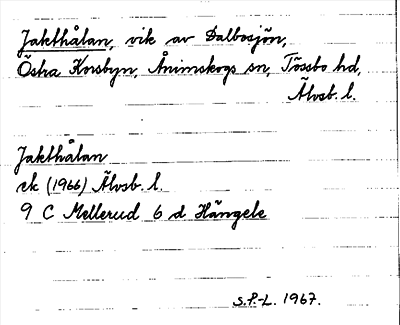 Jakthålan, vik av Dalbosjön,
Östra Korsbyn, Ånimskogs sn, Tössbo hd,
Älvsb. l.
Jakthålan
ek (1966) Älvsb. l.
9 C Mellerud 6 d Hängele
S.P.-L. 1967.